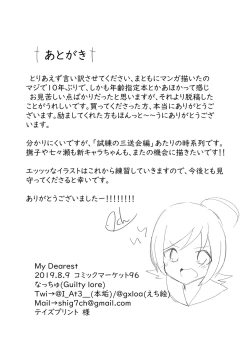 †あとがき†
とりあえず言い訳させてください、まともにマンガ描いたの
マジで10年ぶりで、しかも年齢指定本とかあほかって感じ
お見苦しい点ばかりだったと思いますが、それより脱稿した
ことがうれしいです。買ってくださった方、本当にありがとうご
ざいます。励ましてくれた方もほんっと~~うにありがとうござ
います。
分かりにくいですが、「試練の三送会編」あたりの時系列です。
撫子や七々瀬も新キャラちゃんも、またの機会に描きたいです!!
エッッッなイラストはこれから練習していきますので、今後とも見
守ってくださると幸いです。
ありがとうございましたー!!!!!!!!
My Dearest
2019.8.9 コミックマーケット96
なっちゅ(Guilty lore)
Twi→@I_At3__(本垢)/@gxloa(えち絵)
Mail→shig7ch@gmail.com
テイズプリント 様